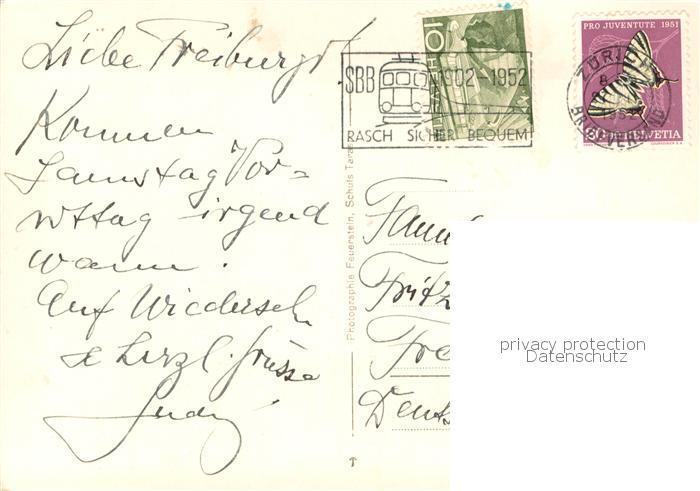 Liebe Freiburger
Kommen
Samstag Vor=
mittag irgend
wann.
Auf Wiederseh
& herzl. Grüsse
SBB 1902-1952
RASCH SICHER BEQUEM
10
HELVETIA
PRO JUVENTUTE 1951
30 HELVETIA
ZÜRICH
Photographie Feuerstein, Schuls Taras
Fritz
privacy protection
Datenschutz